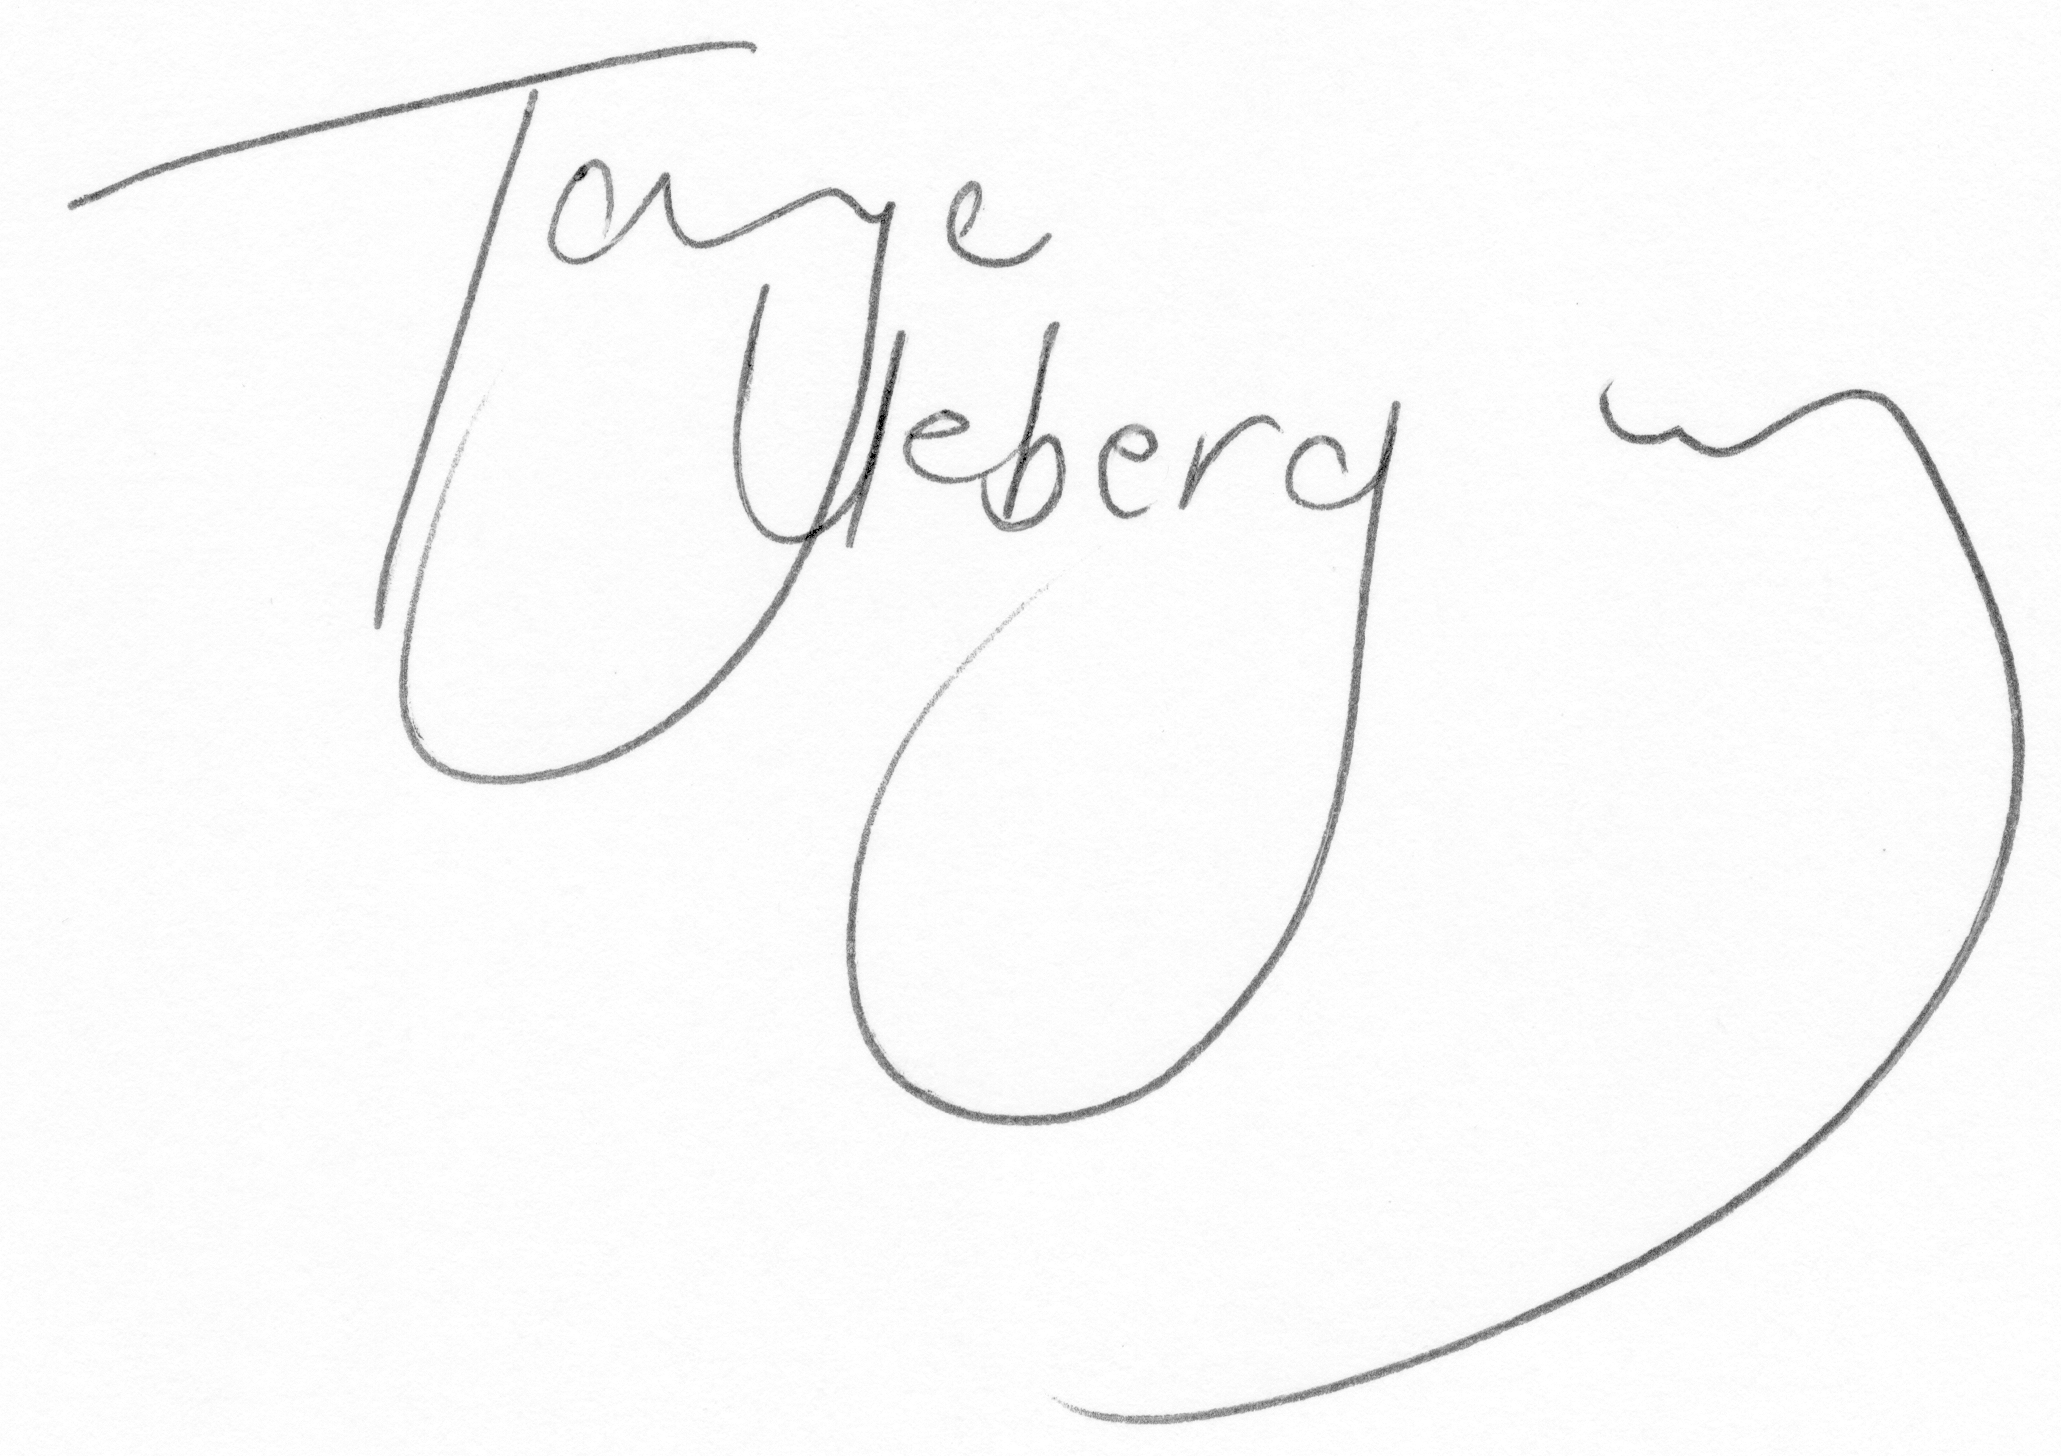 Taye
Ueberg